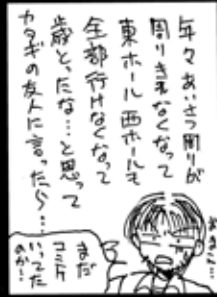 年々あいさつ周りが
周りきれなくなって
東ホール西ホールも
全部行けなくなって
歳とったな…と思って
カタギの友人に言ったら…
まだ
コミケ
いってた
のか…